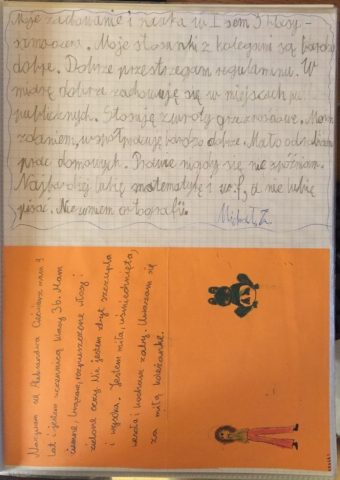 Moje zachowanie i nauka w I sem 3 klasy -
wzorowa. Moje stosunki z kolegami są bardzo
dobre. Dobrze przestrzegam regulaminu. W
miarę dobrze zachowuję się w miejscach pu
publicznych. Stosuję zwroty grzecznościowe. Moim
zdaniem, współpracuję bardzo dobrze. Mało odrabiam
prac domowych. Prawie nigdy się nie spóźniam.
Najbardziej lubię matematykę i w-f, a nie lubię
pisać. Nie umiem ortografii.
Michał, Z.
Nazywam się Aleksandra Cieśniesz mam 9
lat i jestem uczennicą klasy 3b. Mam
ciemne, brązowe, rozpuszczone włosy i
zielone oczy. Nie jestem zbyt szczupła
i wysoka. Jestem miła, uśmiechnięta,
wesoła i kocham żaby. Uważam się
za miłą koleżankę.